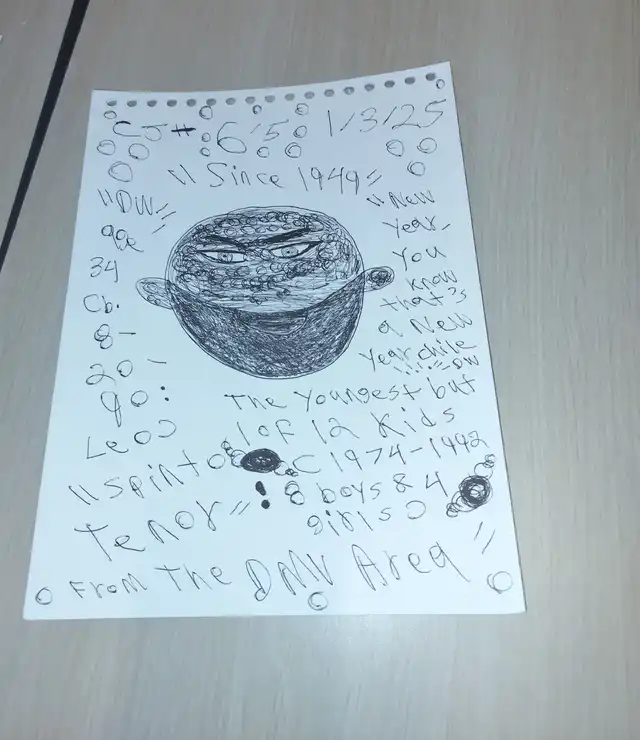 CJ# 6'5 1/3/25
"Since 1949"
"DW"
age
34
Cb.
8-
20-
90:
Leo)
"Spinto
Tenor"!
"New
Year,
You
know
that's
a New
Year, chile
!!!!!"-DW
The Youngest but
1 of 12 Kids
(1974-1992
8 boys & 4
girls)
From The DMV Area"